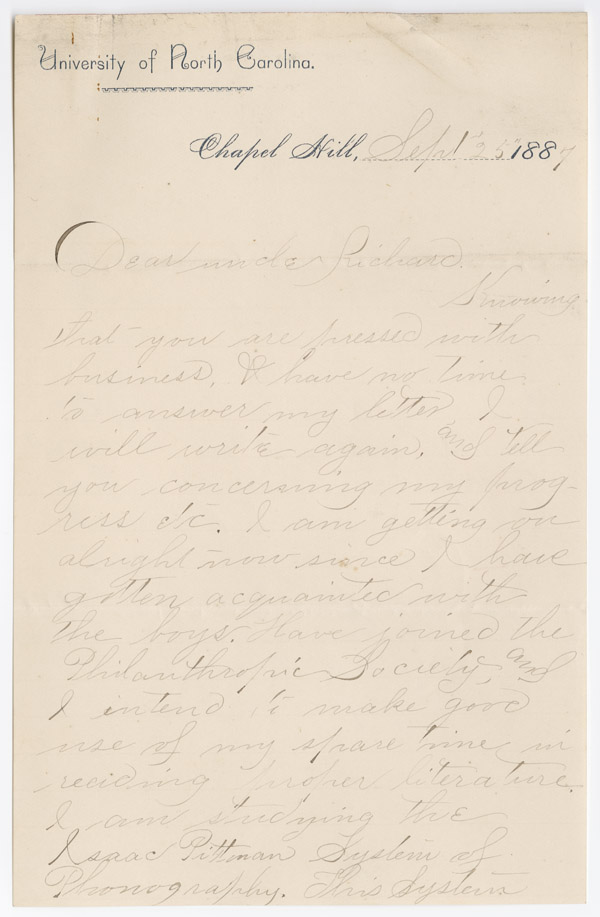 University of North Carolina.
Chapel Hill, Sept 25th 1887
Dear uncle Richard.
Knowing
that you are pressed with
business, & have no time
to answer my letter I
will write again, and tell
you concerning my prog-
ress etc. I am getting on
alright now since I have
gotten acquainted with
the boys. Have joined the
Philanthropic Society, and
I intend to make good
use of my spare time in
reciding proper literature.
I am studying the
Isaac Pittman System of
Phonography. This System